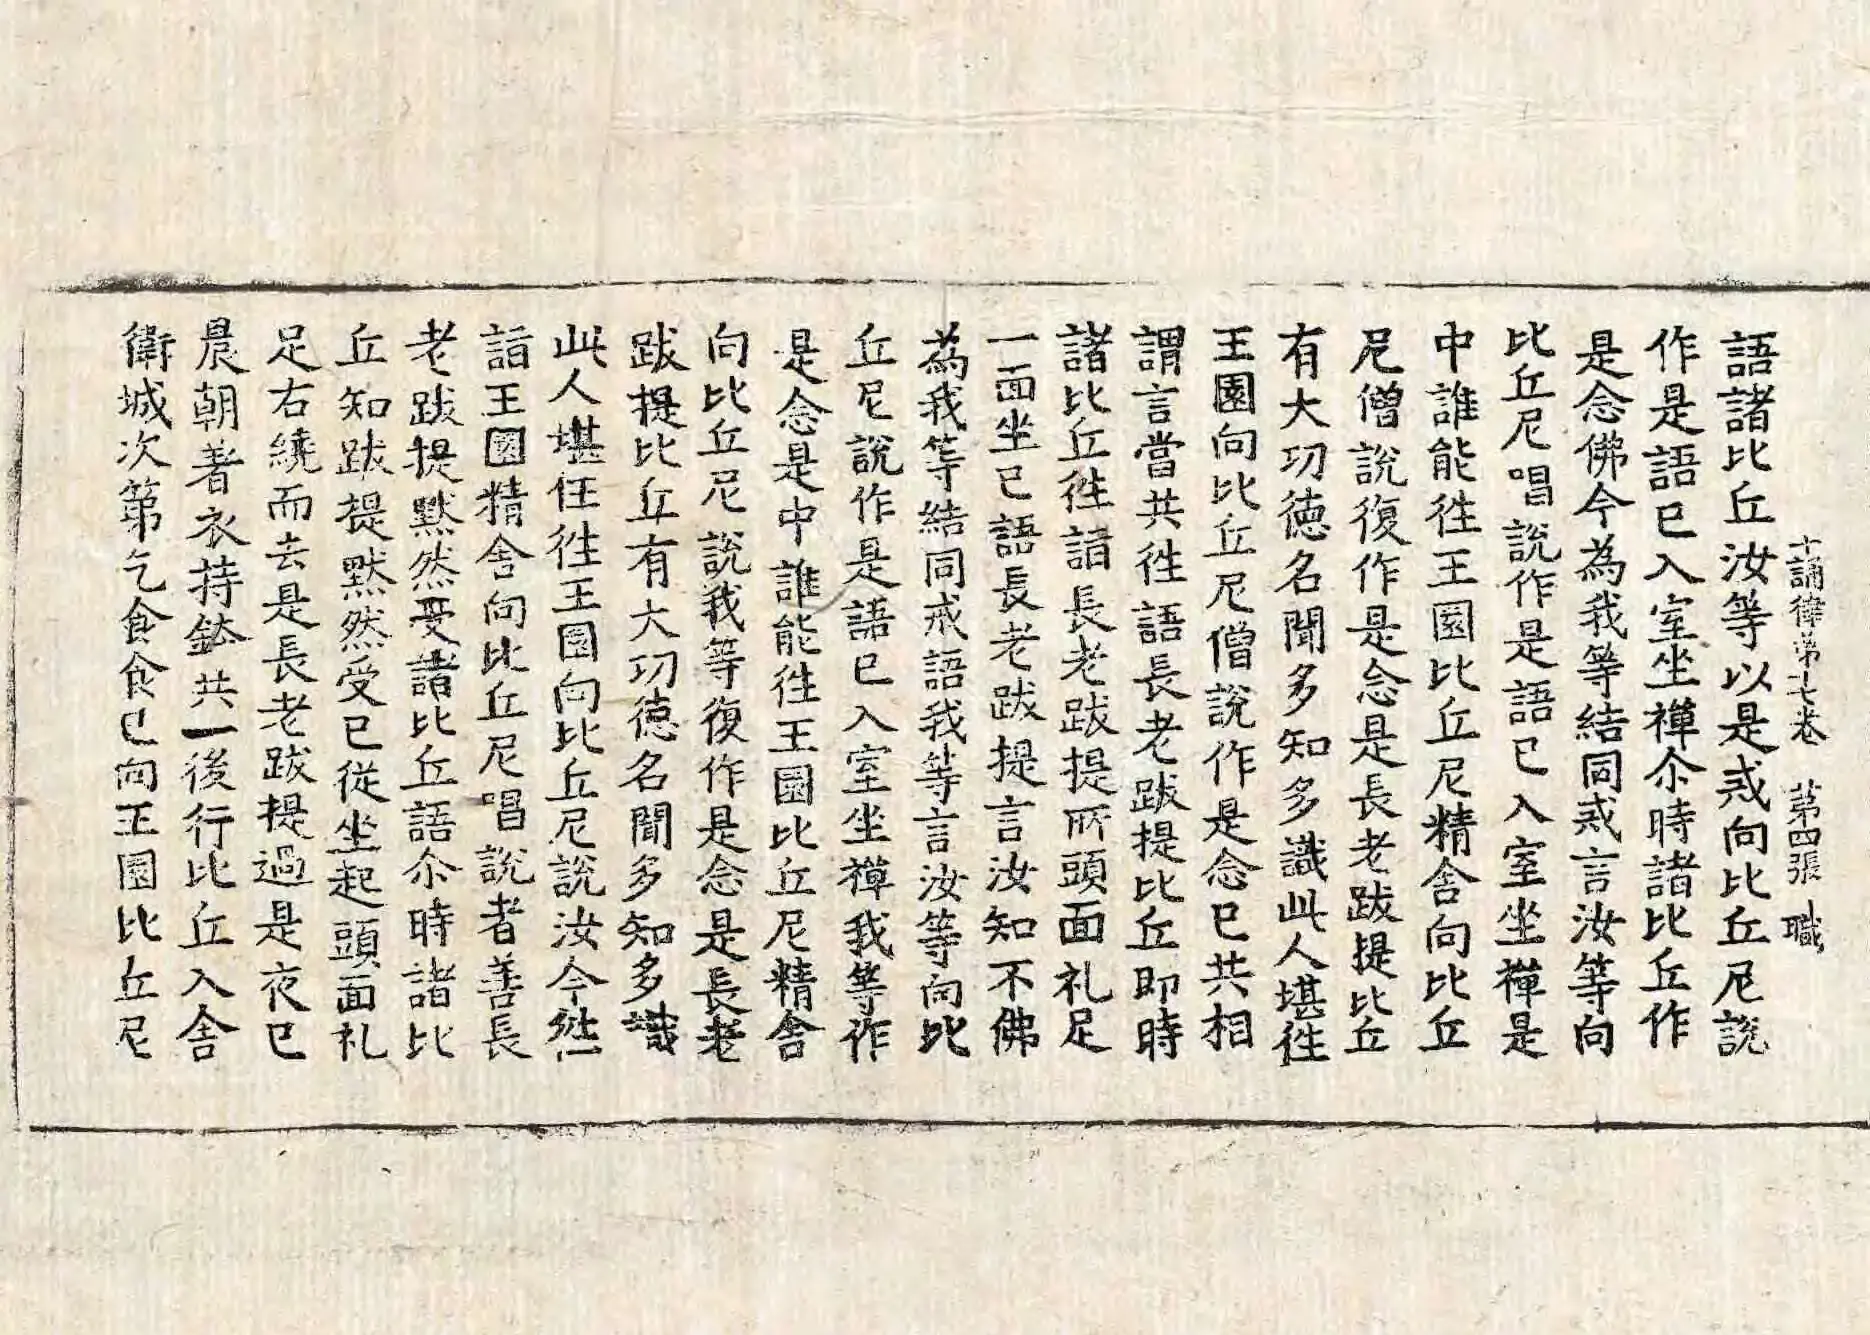 十誦律第十七卷　第四張　職
語諸比丘汝等以是戒向比丘尼說
作是語已入室坐禪尒時諸比丘作
是念佛今為我等結同戒言汝等向
比丘尼唱說作是語已入室坐禪是
中誰能往王園比丘尼精舍向比丘
尼僧說復作是念是長老跋提比丘
有大功德名聞多知多識此人堪往
王園向比丘尼僧說作是念已共相
謂言當共往語長老跋提比丘即時
諸比丘往詣長老跋提所頭面礼足
一面坐已語長老跋提言汝知不佛
為我等結同戒語我等言汝等向比
丘尼說作是語已入室坐禪我等作
是念是中誰能往王園比丘尼精舍
向比丘尼說我等復作是念是長老
跋提比丘有大功德名聞多知多識
此人堪任往王園向比丘尼說汝今往
詣王園精舍向比丘尼唱說者善長
老跋提默然受諸比丘語尒時諸比
丘知跋提默然受已從坐起頭面礼
足右繞而去是長老跋提過是夜已
晨朝著衣持鉢共一後行比丘入舍
衛城次第乞食食已向王園比丘尼